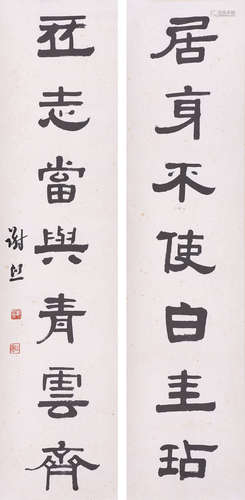 居身不使白圭玷
志當與青雲齊
謝